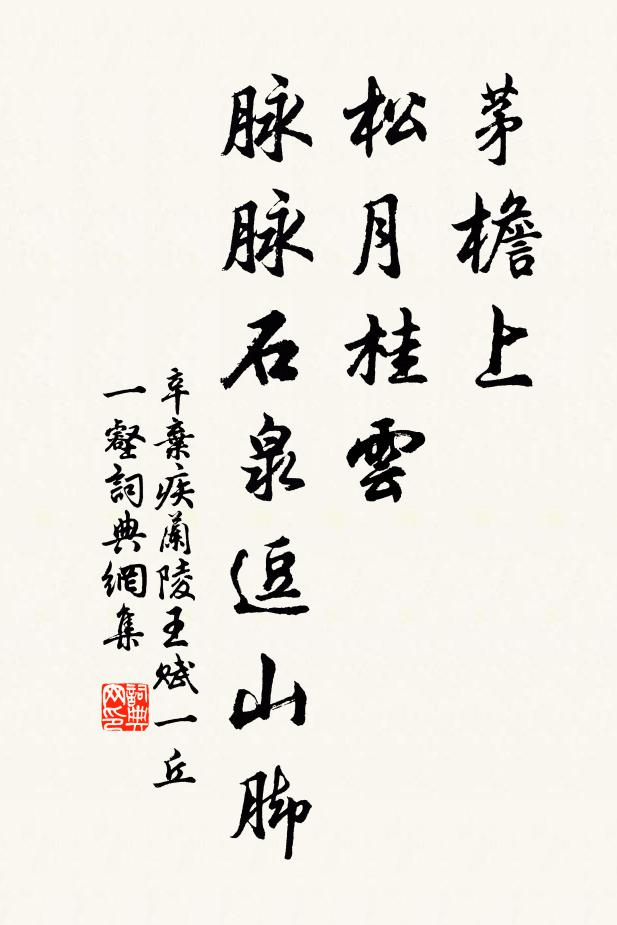 茅檐上
松月桂雲
脉脉石泉逗山脚
辛棄疾蘭陵王賦一丘
一壑詞典網集
詞典
网印